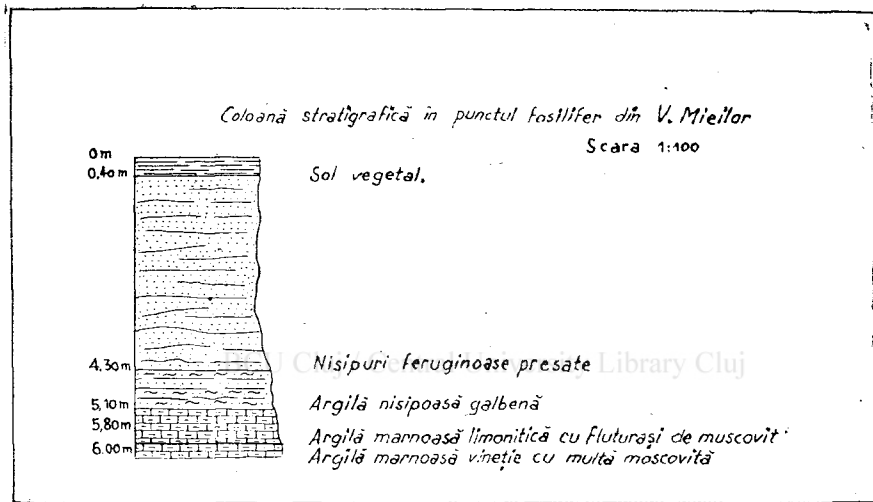 Coloană stratigrafică în punctul fosilifer din V. Mieilor
Scara 1:100
0m
0,40m Sol vegetal.
4,30m Nisipuri feruginoase presate
BCU Cluj / Central University Library Cluj
5,10m Argilă nisipoasă galbenă
5,80m Argilă marnoasă limonitică cu fluturași de muscovit
6.00m Argilă marnoasă vineție cu multă moscovită